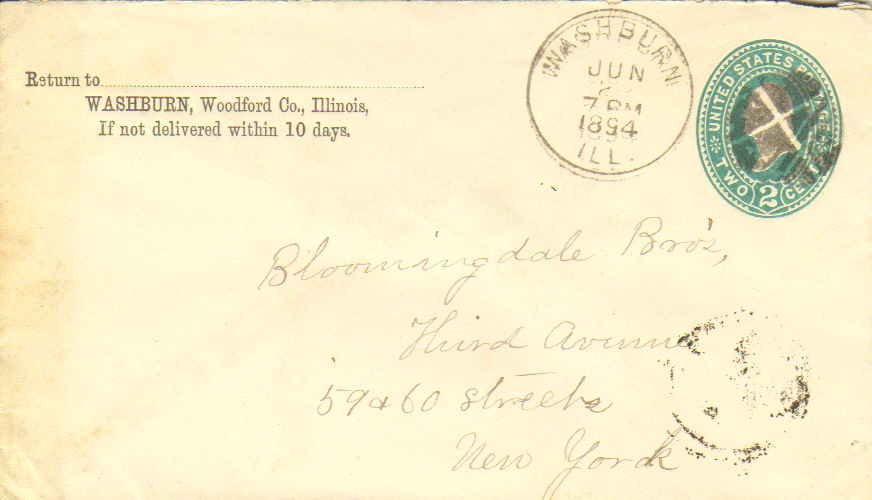 Return to
WASHBURN, Woodford Co., Illinois,
If not delivered within 10 days.
WASHBURN
JUN
7 PM
1894
ILL.
UNITED STATES POSTAGE
TWO 2 CENTS
Bloomingdale Bro's,
Third Avenue
59 & 60 streets
New York